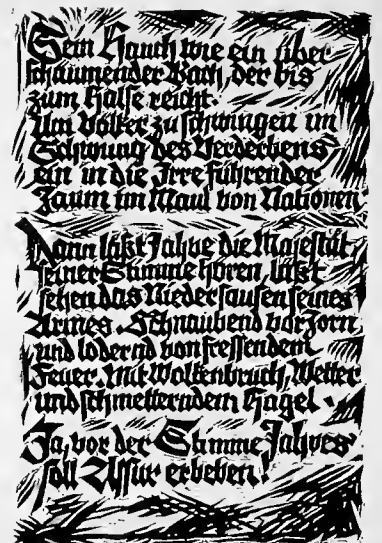 Sein Hauch wie ein über
schäumender Bach, der bis
zum Halse reicht.
Um Völker zu schwingen im
Schwung des Verderbens
ein in die Irre führender
Zaum im Maul von Nationen
Dann läßt Jahve die Majestät
seiner Stimme hören, läßt
sehen das Niedersausen seines
Armes. Schnaubend vor Zorn
und lodernd von fressendem
Feuer. Mit Wolkenbruch, Wetter
und schmetterndem Hagel.
Ja, vor der Stimme Jahves
soll Assur erbeben.